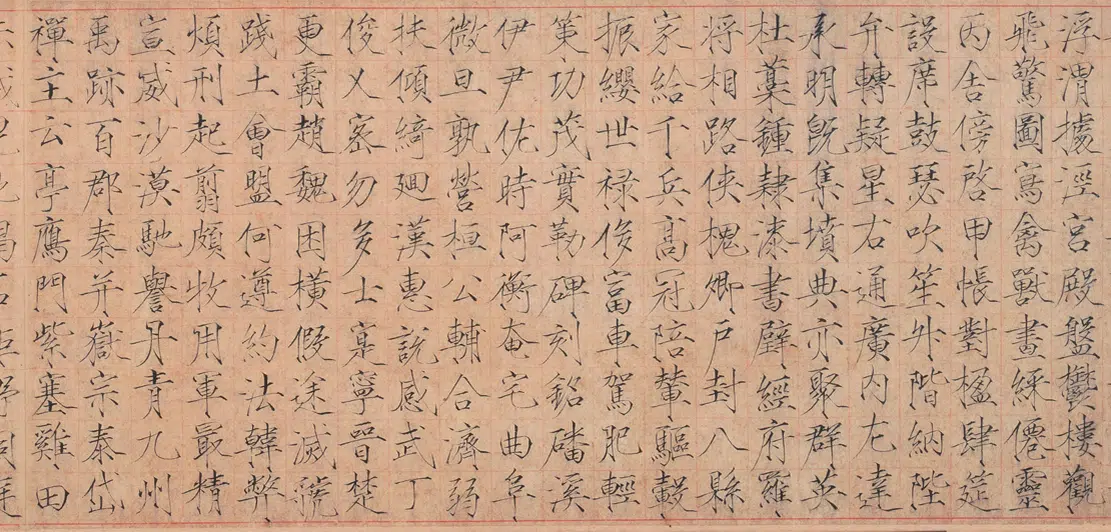 浮渭據涇宮殿盤鬱樓觀
飛驚圖寫禽獸畫綵僊靈
丙舍傍啓甲帳對楹肆筵
設席鼓瑟吹笙升階納陛
弁轉疑星右通廣內左達
承明既集墳典亦聚群英
杜稾鍾隸漆書壁經府羅
將相路俠槐卿戶封八縣
家給千兵高冠陪輦驅轂
振纓世祿侈富車駕肥輕
策功茂實勒碑刻銘磻溪
伊尹佐時阿衡奄宅曲阜
微旦孰營桓公輔合濟弱
扶傾綺迴漢惠說感武丁
俊乂密勿多士寔寧晉楚
更霸趙魏困橫假途滅虢
踐土會盟何遵約法韓弊
煩刑起翦頗牧用軍最精
宣威沙漠馳譽丹青九州
禹跡百郡秦并嶽宗泰岱
禪主云亭鴈門紫塞雞田